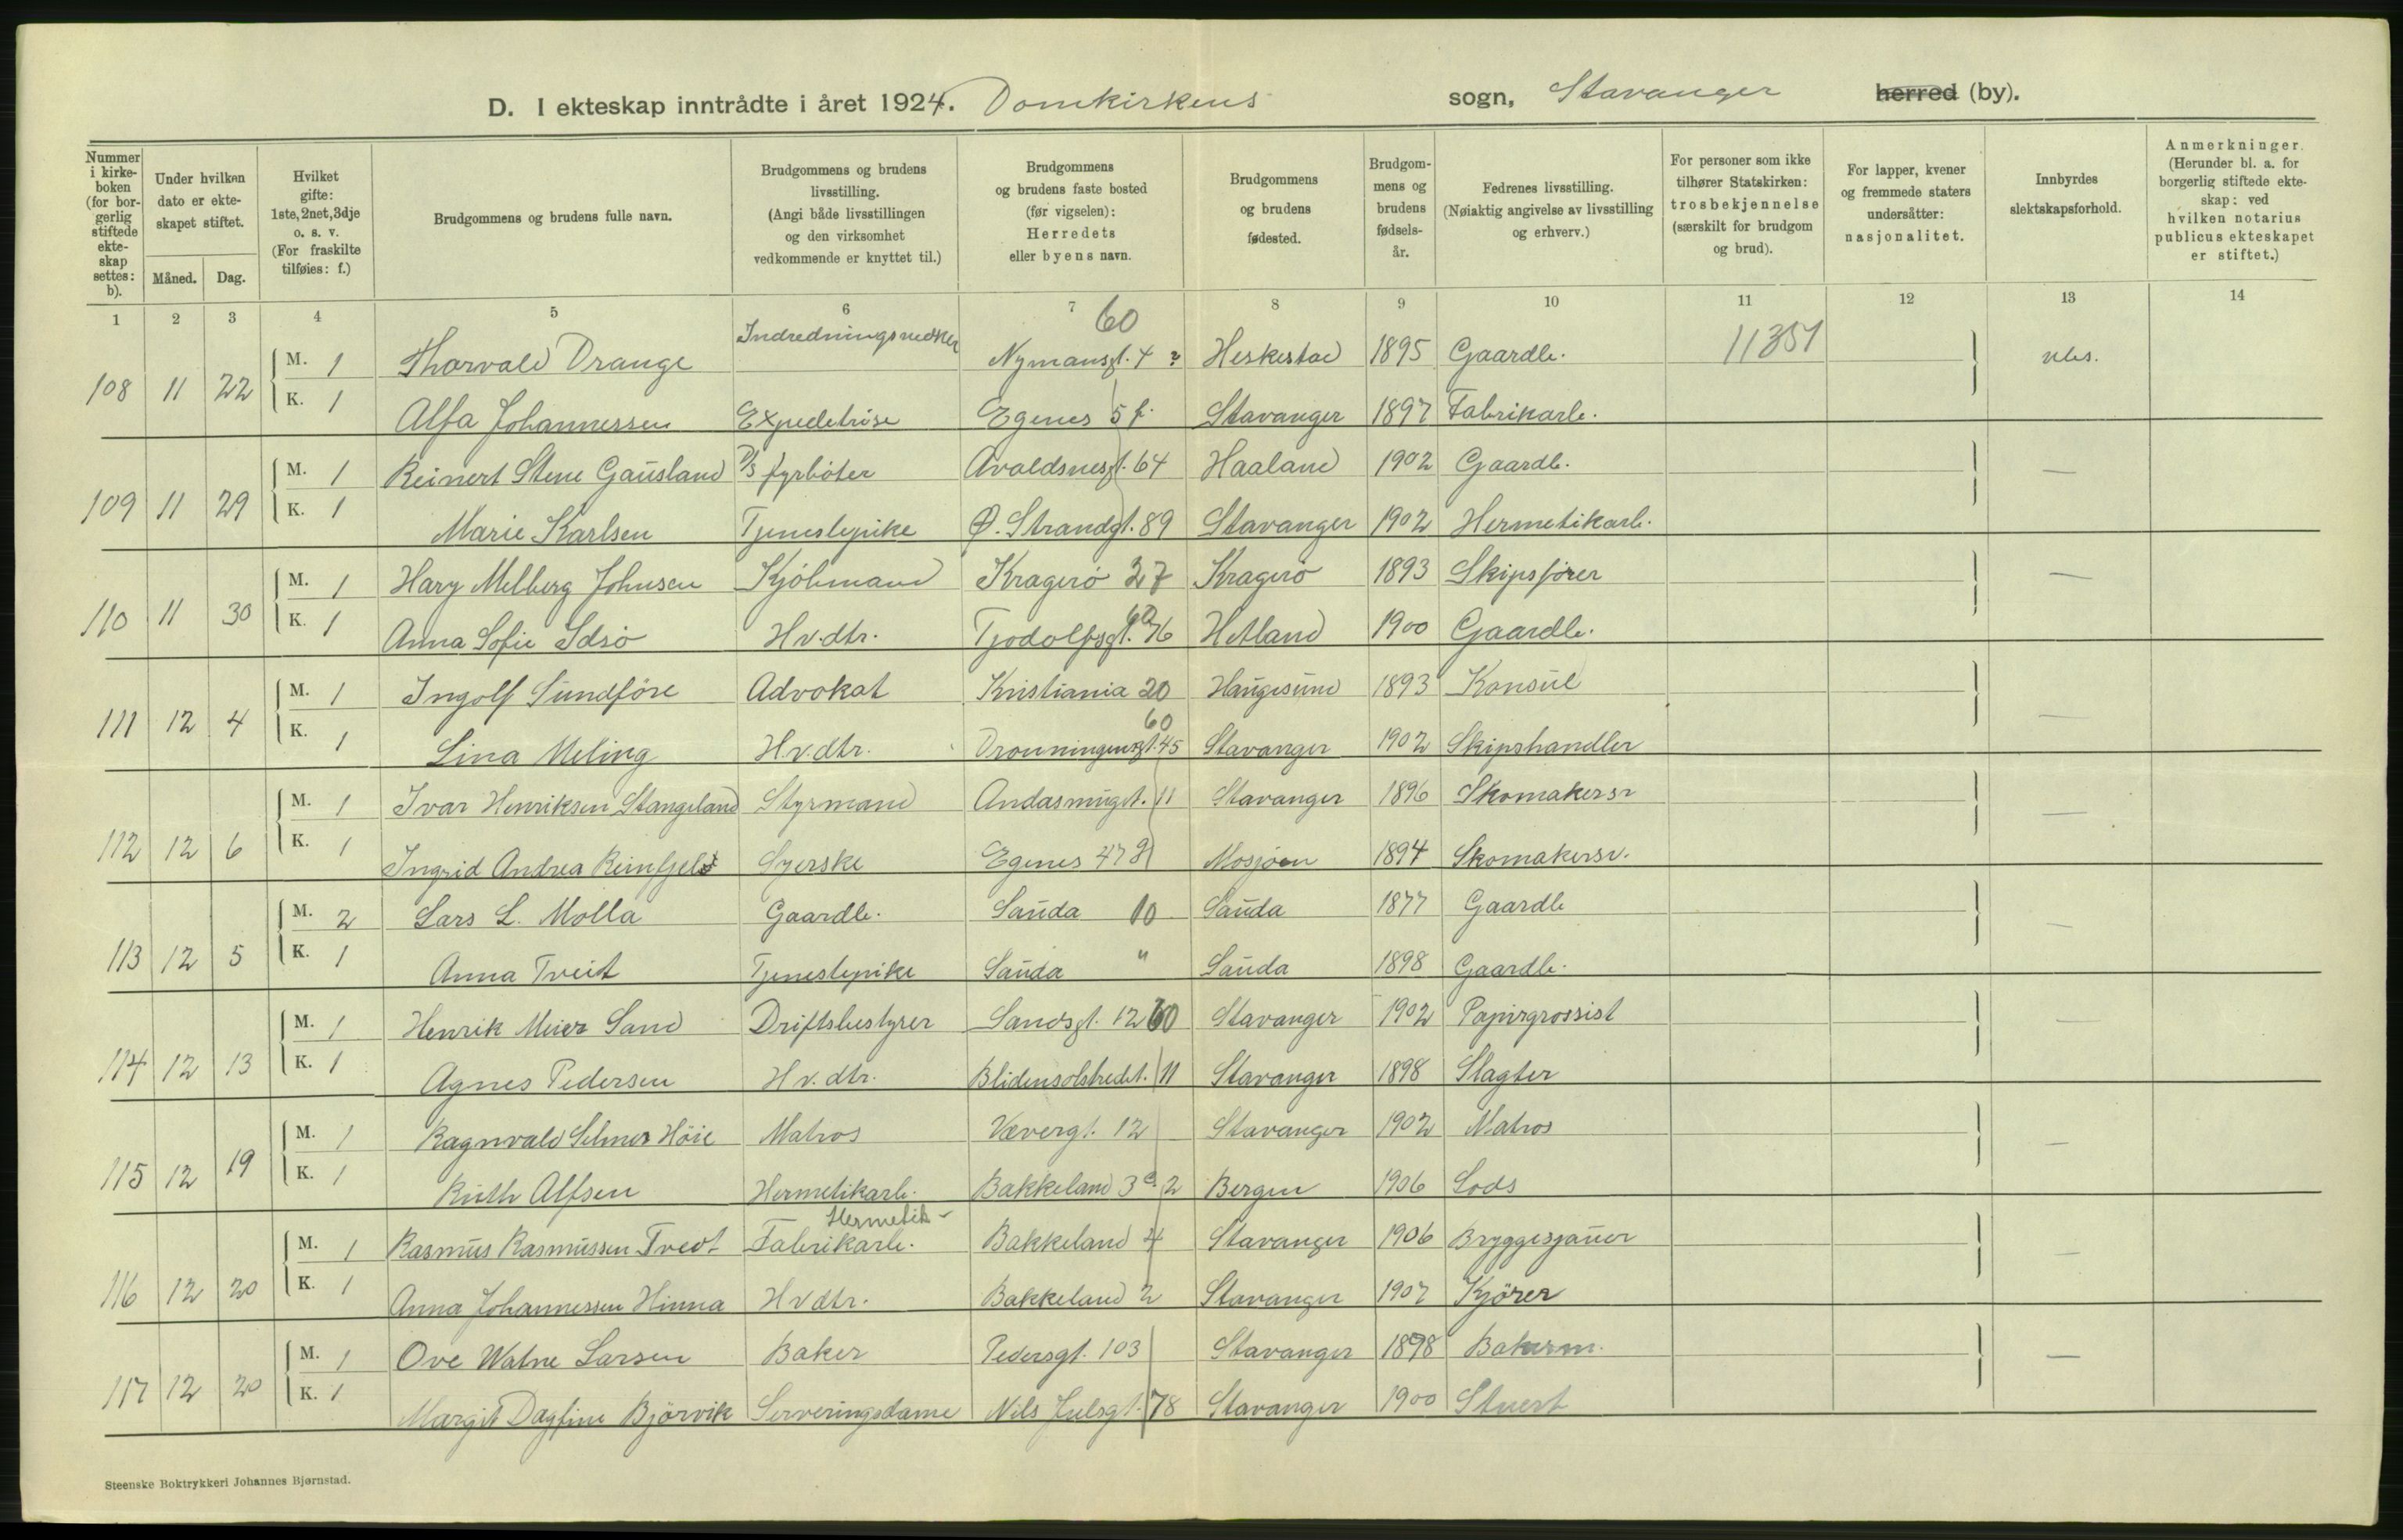 D. I ekteskap inntrådte i året 1924. Domkirkens sogn, Stavanger herred (by).
Nummer i kirkeboken (for borgerlig stiftede ekteskap settes: b).
Under hvilken dato er ekteskapet stiftet.
Måned. Dag.
Hvilket gifte: 1ste, 2net, 3dje o. s. v. (For fraskilte tilføies: f.)
Brudgommens og brudens fulle navn.
Brudgommens og brudens livsstilling. (Angi både livsstillingen og den virksomhet vedkommende er knyttet til.)
Brudgommens og brudens faste bosted (før vigselen): Herredets eller byens navn.
Brudgommens og brudens fødested.
Brudgommens og brudens fødselsår.
Fedrenes livsstilling. (Nøiaktig angivelse av livsstilling og erhverv.)
For personer som ikke tilhører Statskirken: trosbekjennelse (særskilt for brudgom og brud).
For lapper, kvener og fremmede staters undersåtter: nasjonalitet.
Innbyrdes slektskapsforhold.
Anmerkninger. (Herunder bl. a. for borgerlig stiftede ekteskap: ved hvilken notarius publicus ekteskapet er stiftet.)
1 2 3 4 5 6 7 8 9 10 11 12 13 14
60
108 11 22 M. 1 Thorvald Drange Indredningssnedker Nymansgt. 4 Heskestad 1895 Gaardb. 11351
K. 1 Alfa Johannessen Expeditrise Egenes 5 f. Stavanger 1897 Fabrikarb.
109 11 29 M. 1 Reinert Stene Gausland D/S fyrbøter Avaldsnesgt. 64 Haaland 1902 Gaardb. —
K. 1 Marie Karlsen Tjenestepike Ø. Strandgt. 89 Stavanger 1902 Hermetikarb.
110 11 30 M. 1 Hary Melberg Johnsen Kjöbmand Kragerö 27 Kragerö 1893 Skipsförer —
K. 1 Anna Sofie Idsö Hv.dtr. Tjodolfsgt. 76 60 Hetland 1900 Gaardb.
111 12 4 M. 1 Ingolf Sundföre Advokat Kristiania 20 Haugesund 1893 Konsul —
K. 1 Lina Meling Hv.dtr. Dronningensgt. 45 60 Stavanger 1902 Skipshandler
112 12 6 M. 1 Ivar Henriksen Stangeland Styrmand Andasmugt. 11 Stavanger 1896 Skomakersv. —
K. 1 Ingrid Andrea Reinfjeld Syerske Egenes 47 Mosjöen 1894 Skomakersv.
113 12 5 M. 2 Lars L. Molla Gaardb. Sauda 10 Sauda 1877 Gaardb —
K. 1 Anna Tveit Tjenestepike Sauda " Sauda 1898 Gaardb.
114 12 13 M. 1 Henrik Meier Sand Driftsbestyrer Sandsgt. 12 60 Stavanger 1902 Papirgrossist —
K. 1 Agnes Pedersen Hv.dtr. Blidensolstredet. 11 Stavanger 1898 Slagter
115 12 19 M. 1 Ragnvald Selmer Höie Matros Vævergt. 12 Stavanger 1902 Matros —
K. 1 Ruth Alfsen Hermetikarb. Bakkeland 3 c. 2 Bergen 1906 Lods
116 12 20 M. 1 Rasmus Rasmussen Tvedt Hermetik- Fabrikarb. Bakkeland 4 Stavanger 1906 Bryggesjauer —
K. 1 Anna Johannessen Hinna Hvdtr. Bakkeland 2 Stavanger 1907 Kjörer
117 12 20 M. 1 Ove Watne Larsen Baker Pedersgt. 103 Stavanger 1898 Bakerm. —
K. 1 Margit Dagfine Björvik Serveringsdame Nils Juelsgt. 78 Stavanger 1900 Stuert
Steenske Boktrykkeri Johannes Bjørnstad.